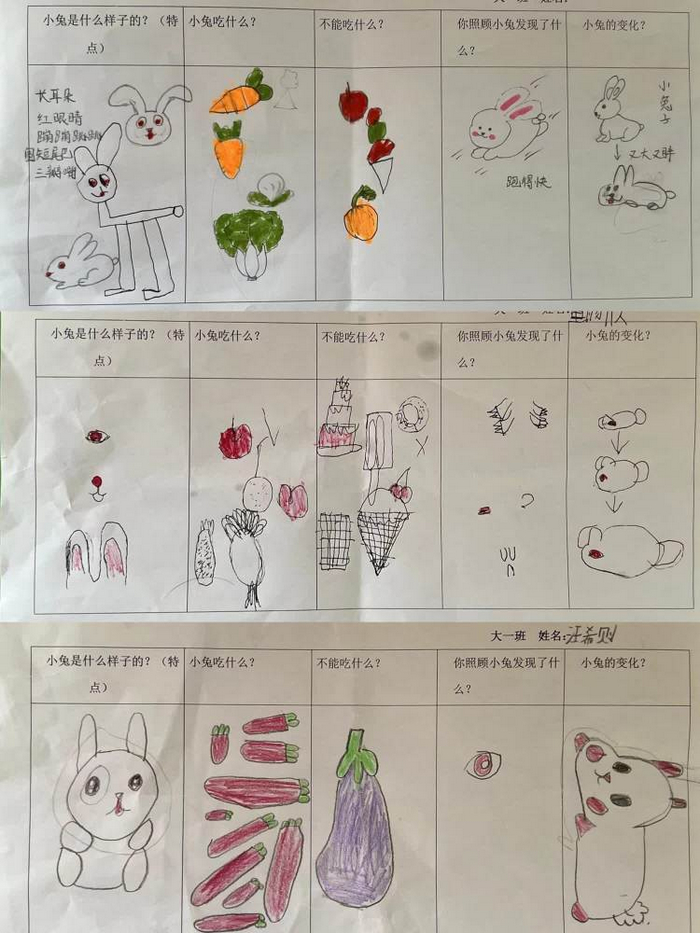 小兔是什么样子的？（特点）
小兔吃什么？
不能吃什么？
你照顾小兔发现了什么？
小兔的变化？
长耳朵
红眼睛
蹦蹦跳跳
圆短尾巴
三瓣嘴
跑得快
小兔子
又大又胖
小兔是什么样子的？（特点）
小兔吃什么？
不能吃什么？
你照顾小兔发现了什么？
小兔的变化？
大一班 姓名:汪希则
小兔是什么样子的？（特点）
小兔吃什么？
不能吃什么？
你照顾小兔发现了什么？
小兔的变化？